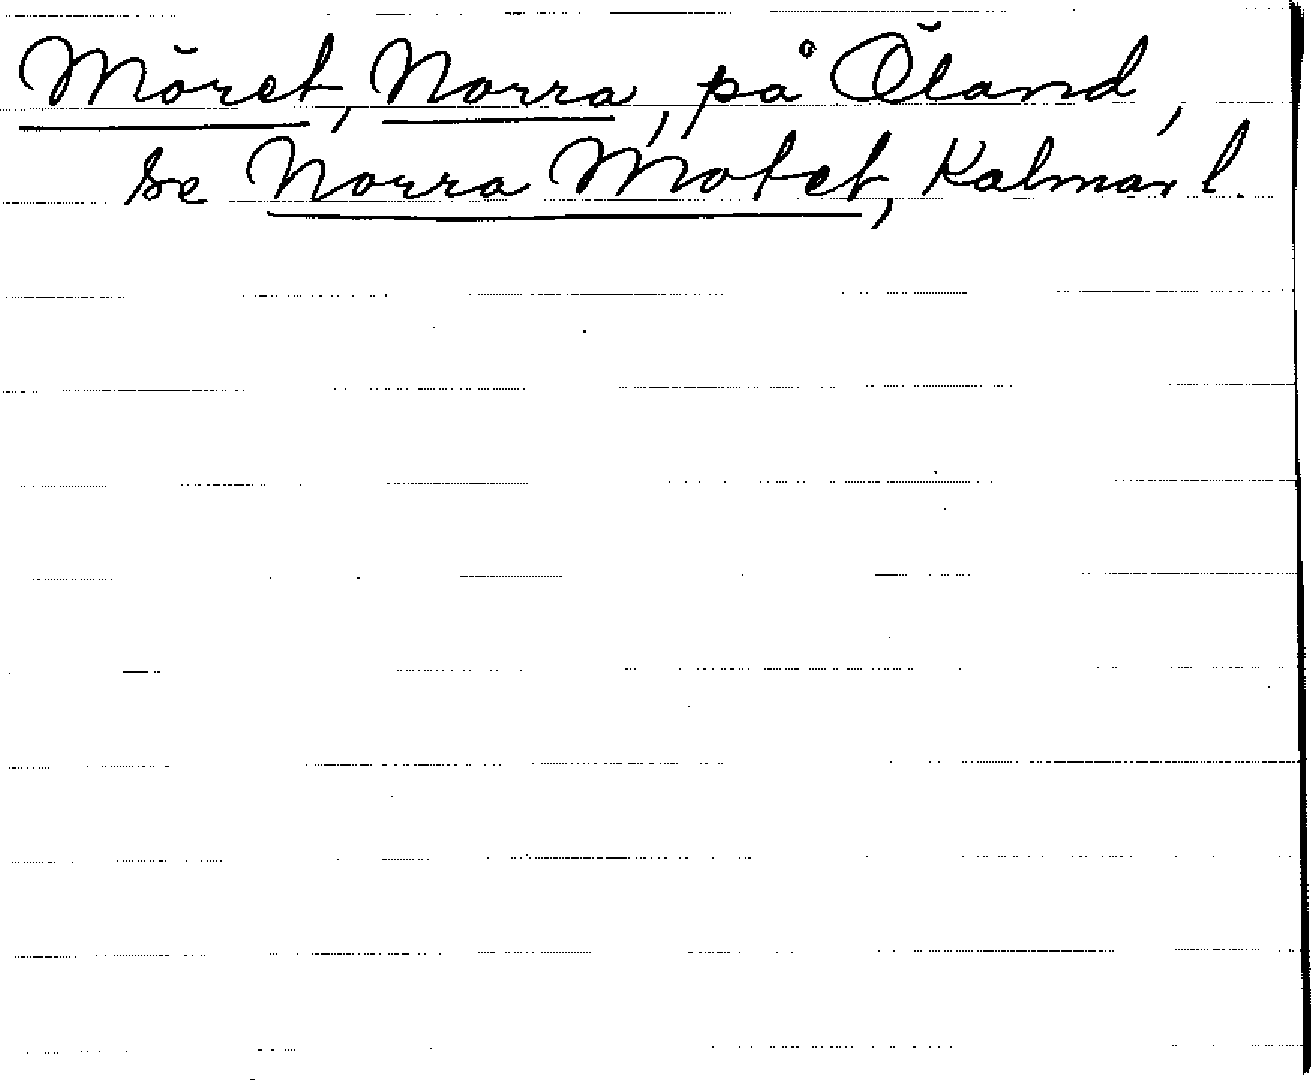 Möret, Norra, på Öland,
se Norra Motet, Kalmar l.